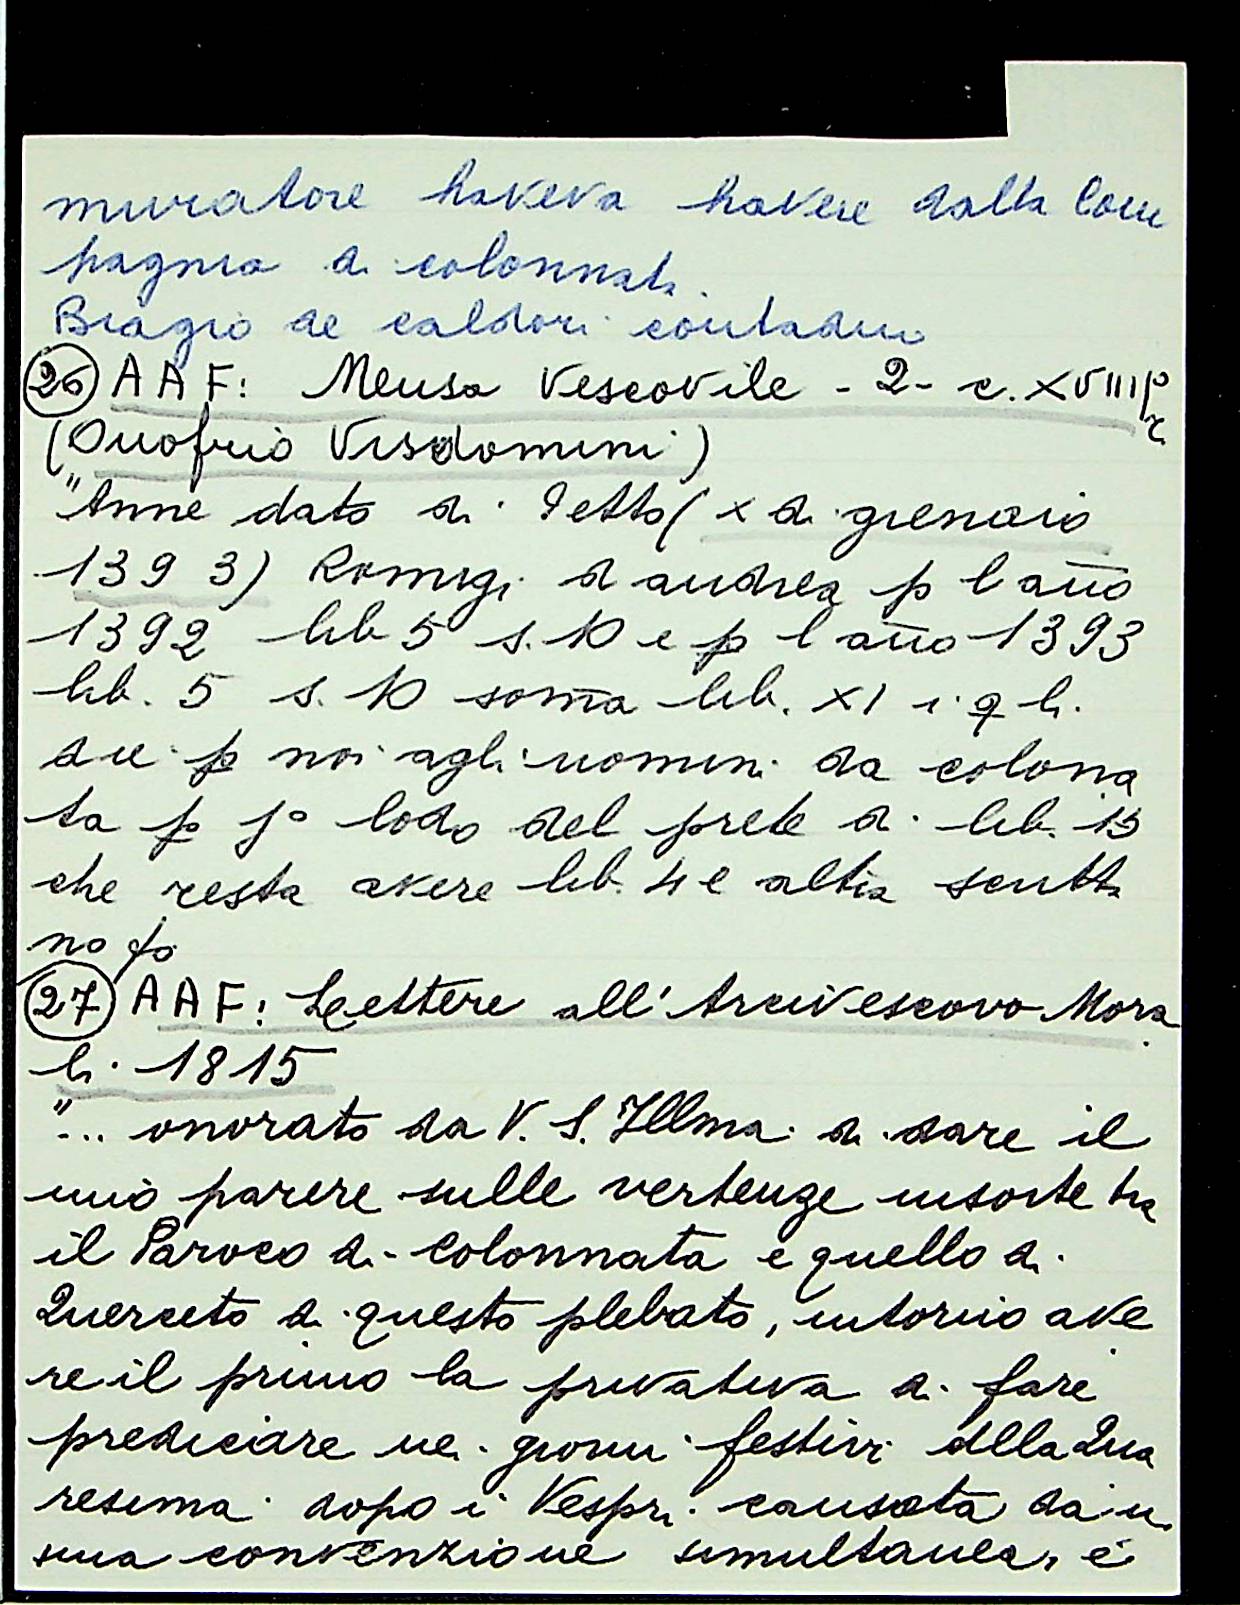 muratore haveva havere dalla Com
pagnia di colonnata.
Biagio de caldori contadino
26 AAF: Mensa Vescovile - 2 - c. XVIII
(Onofrio Visdomini)
"Anne dato di detto (x di gienaio
1393) Romigi d andrea p l año
1392 lib 5 s. 10 e p l año 1393
lib. 5 s. 10 soma lib. XI i qli
die p noi agli uomini da colona
ta p 1º lodo del prete di lib. 15
che resta avere lib. 4 e altra scritta
no fo
27 AAF: Lettere all'Arcivescovo Mora
li. 1815
"... onorato da V. S. Illma. di dare il
mio parere sulle vertenze insorte tra
il Paroco di Colonnata e quello di
Querceto di questo plebato, intorno ave
re il primo la privativa di fare
predicare nei giorni festivi della Qua
resima dopo i Vespri causata da u
na convenzione simultanea, e